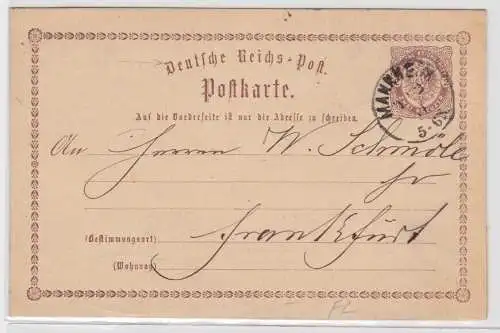 Deutsche Reichs-Post.
Postkarte.
MANNHEIM
5-6
Auf die Vorderseite ist nur die Adresse zu schreiben.
An Herren W. Schmöle
Frankfurt
(Bestimmungsort)
(Wohnung)